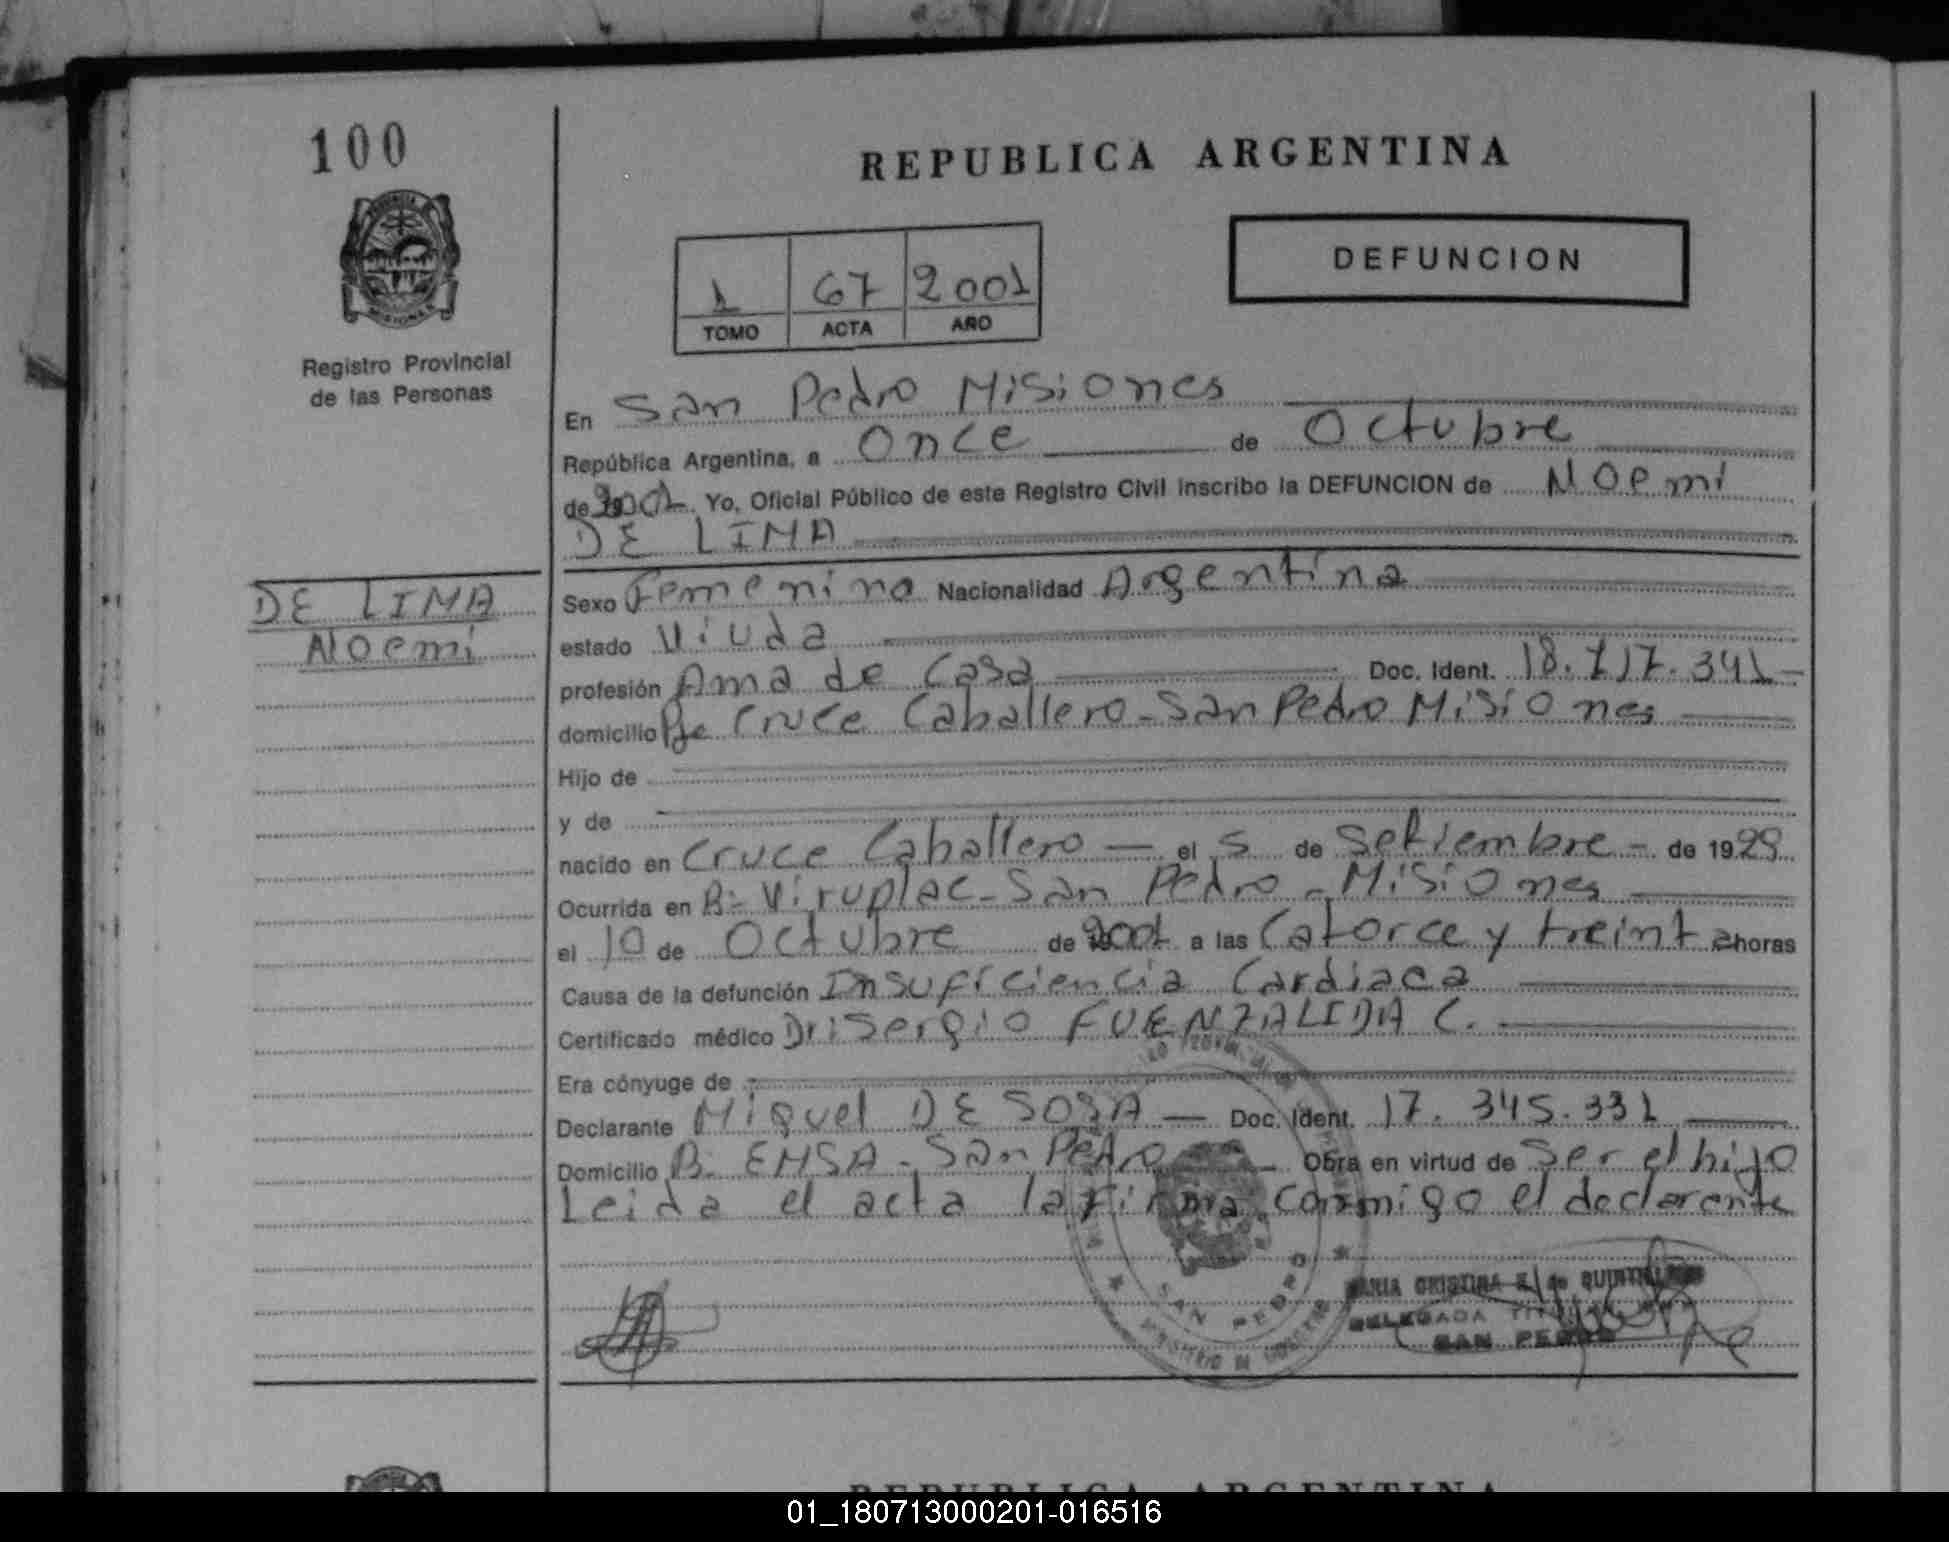 100
REPUBLICA ARGENTINA
DEFUNCION
1 67 2001
TOMO ACTA AÑO
Registro Provincial
de las Personas
En San Pedro Misiones
República Argentina, a Once de Octubre
de 2001 Yo, Oficial Público de este Registro Civil inscribo la DEFUNCION de Noemi
DE LIMA
DE LIMA
Noemi
Sexo Femenino Nacionalidad Argentina
estado Viuda
profesión Ama de Casa Doc. Ident. 18.717.341
domicilio Pje Cruce Caballero - San Pedro Misiones
Hijo de
y de
nacido en Cruce Caballero — el 5 de Setiembre - de 1929
Ocurrida en B- Viruplac - San Pedro - Misiones
el 10 de Octubre de 2001 a las Catorce y treinta horas
Causa de la defunción Insuficiencia Cardiaca
Certificado médico Dr: Sergio FUENZALIDA C.
Era cónyuge de
Declarante Miguel DE SOSA — Doc. Ident. 17.345.331
Domicilio B. EMSA - San Pedro Obra en virtud de Ser el hijo
Leida el acta la firma conmigo el declarente
SAN PEDRO
MARIA CRISTINA
DELEGADA TITULAR
SAN PEDRO
REPUBLICA ARGENTINA
01_180713000201-016516